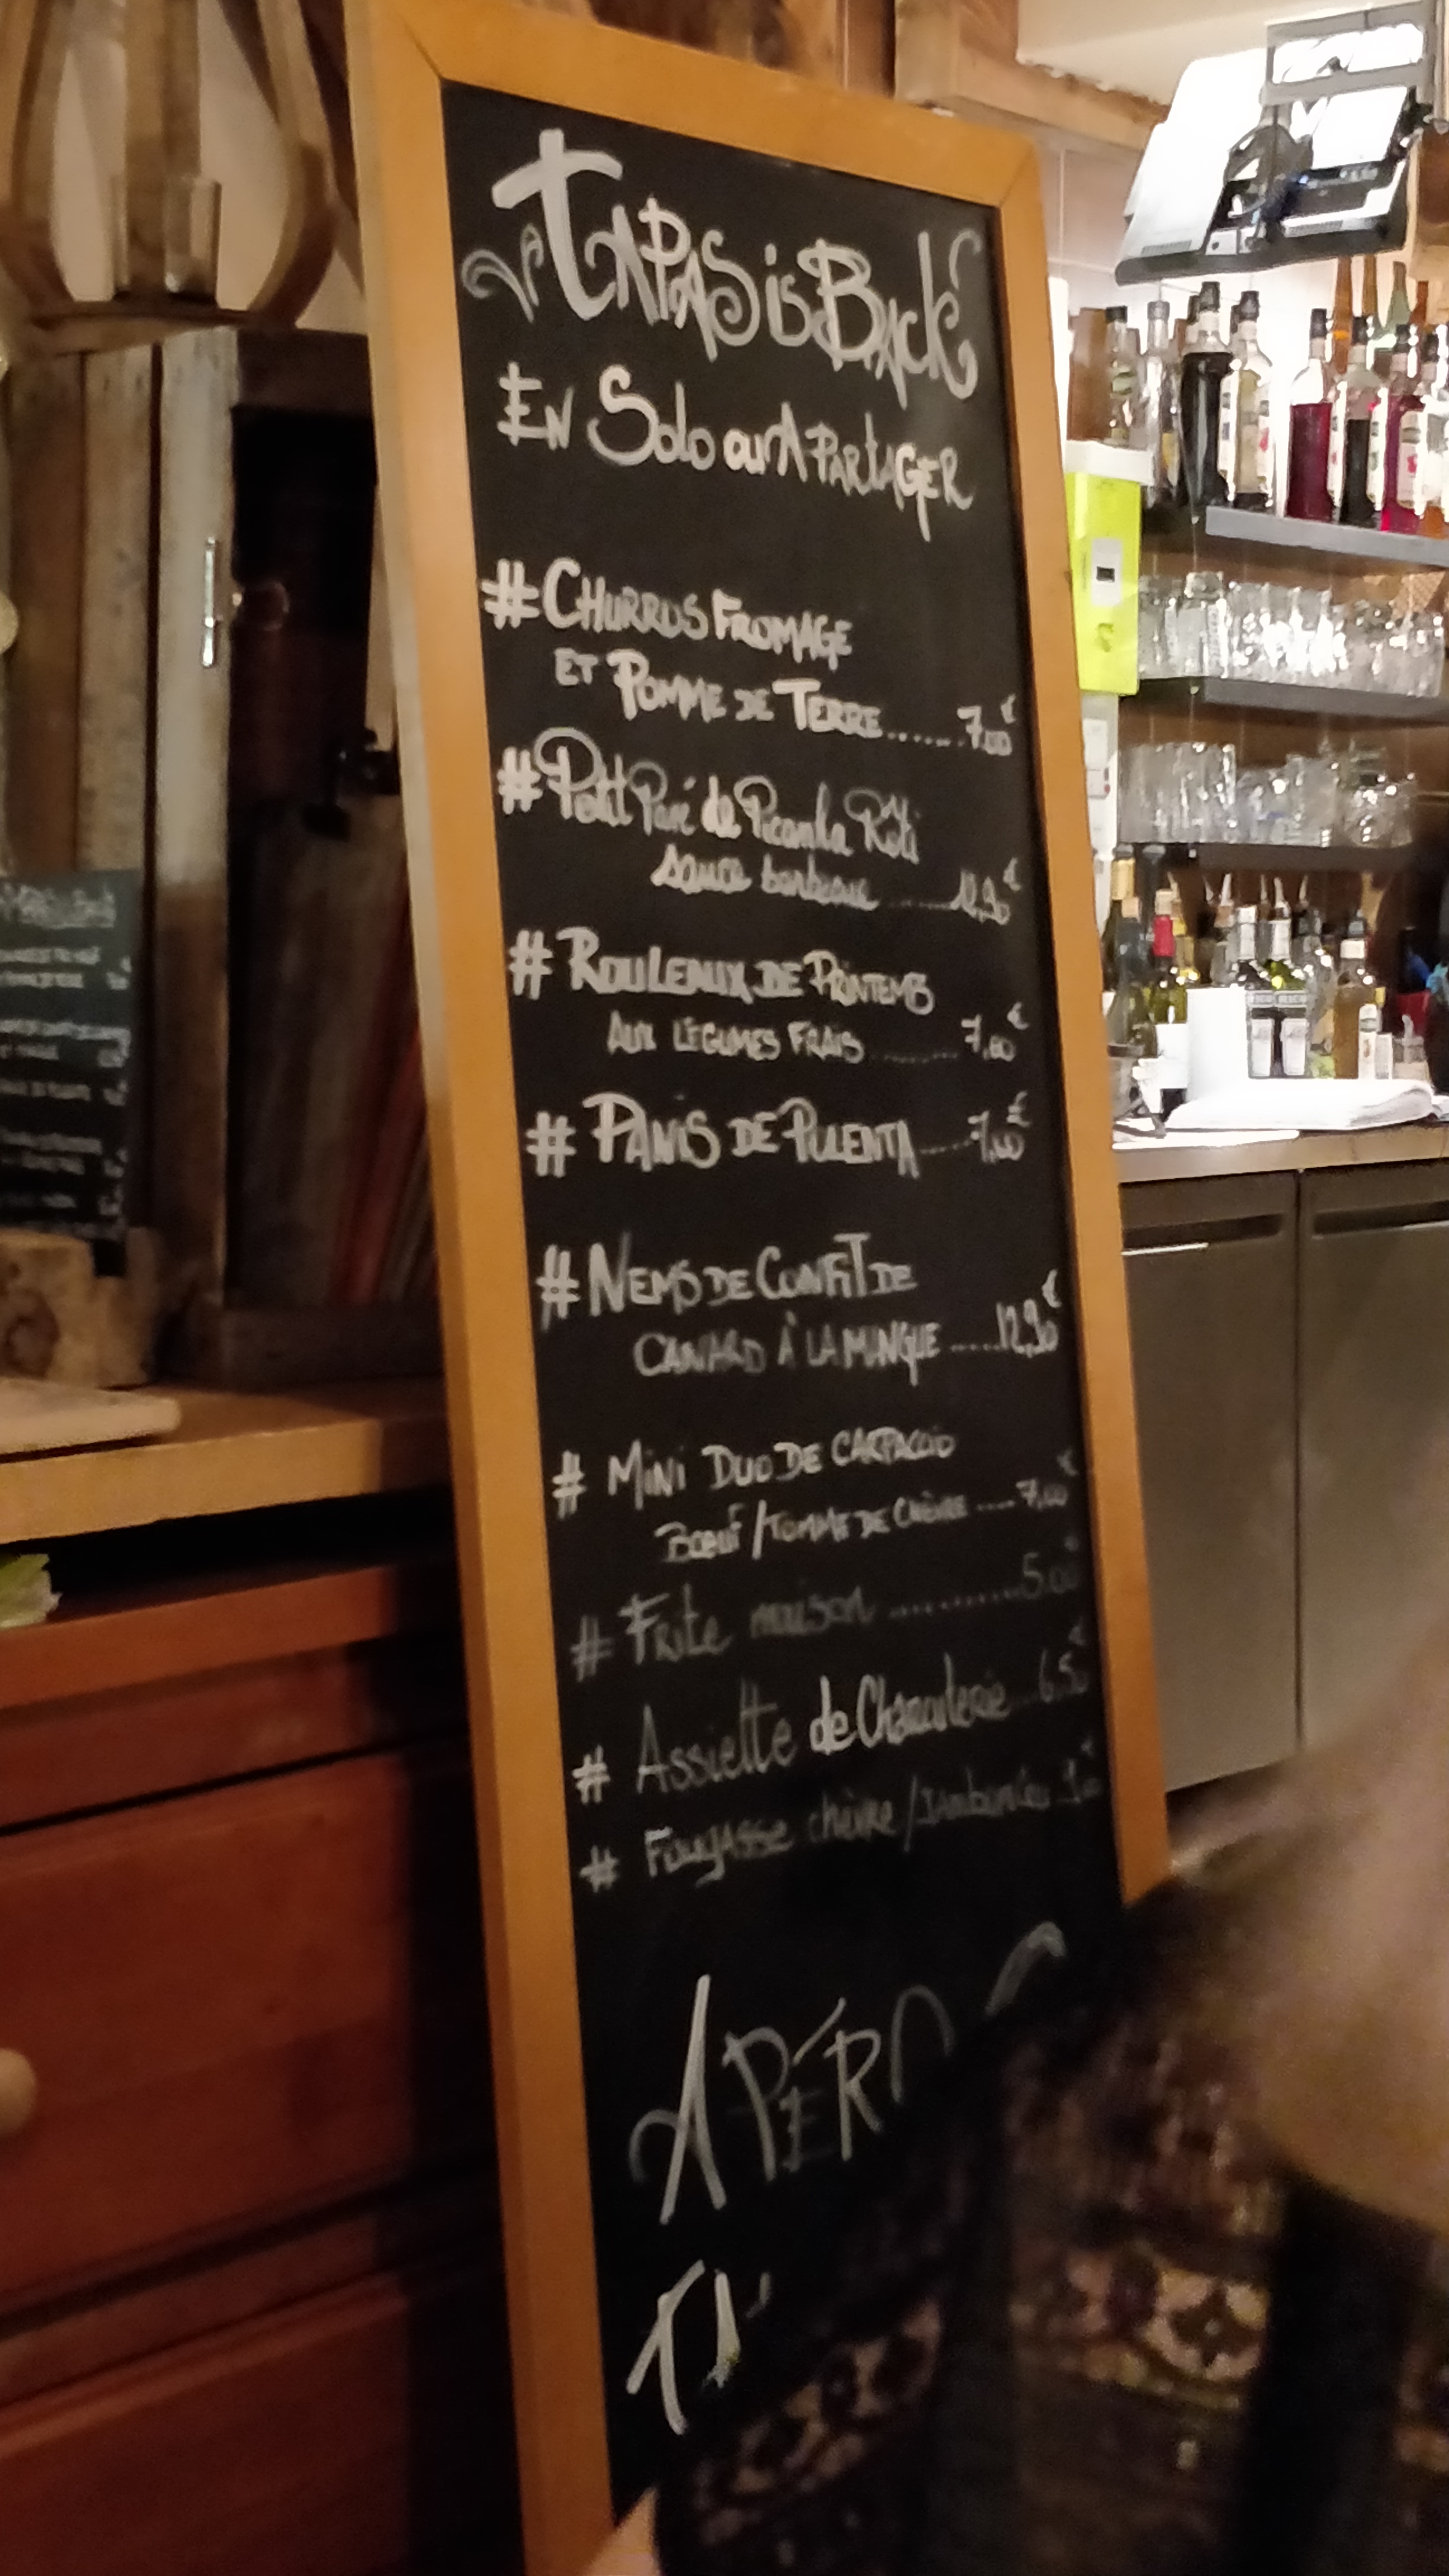 TAPAS is BACK
EN Solo ou A PARTAGER
# CHURROS FROMAGE
ET POMME DE TERRE.......7.00€
# Petit Pavé de Picanha Rôti
sauce barbecue........12,90€
# ROULEAUX DE PRINTEMPS
AUX LÉGUMES FRAIS........7,00€
# PANIS DE POLENTA.....7,00€
# NEMS DE CONFIT DE
CANARD À LA MANGUE.....12,90€
# MINI DUO DE CARPACCIO
BOEUF / TOMME DE CHÈVRE....7,00€
# Frite maison..........5.00€
# Assiette de Charcuterie 6.50€
# FOUGASSE chèvre /
APÉRO